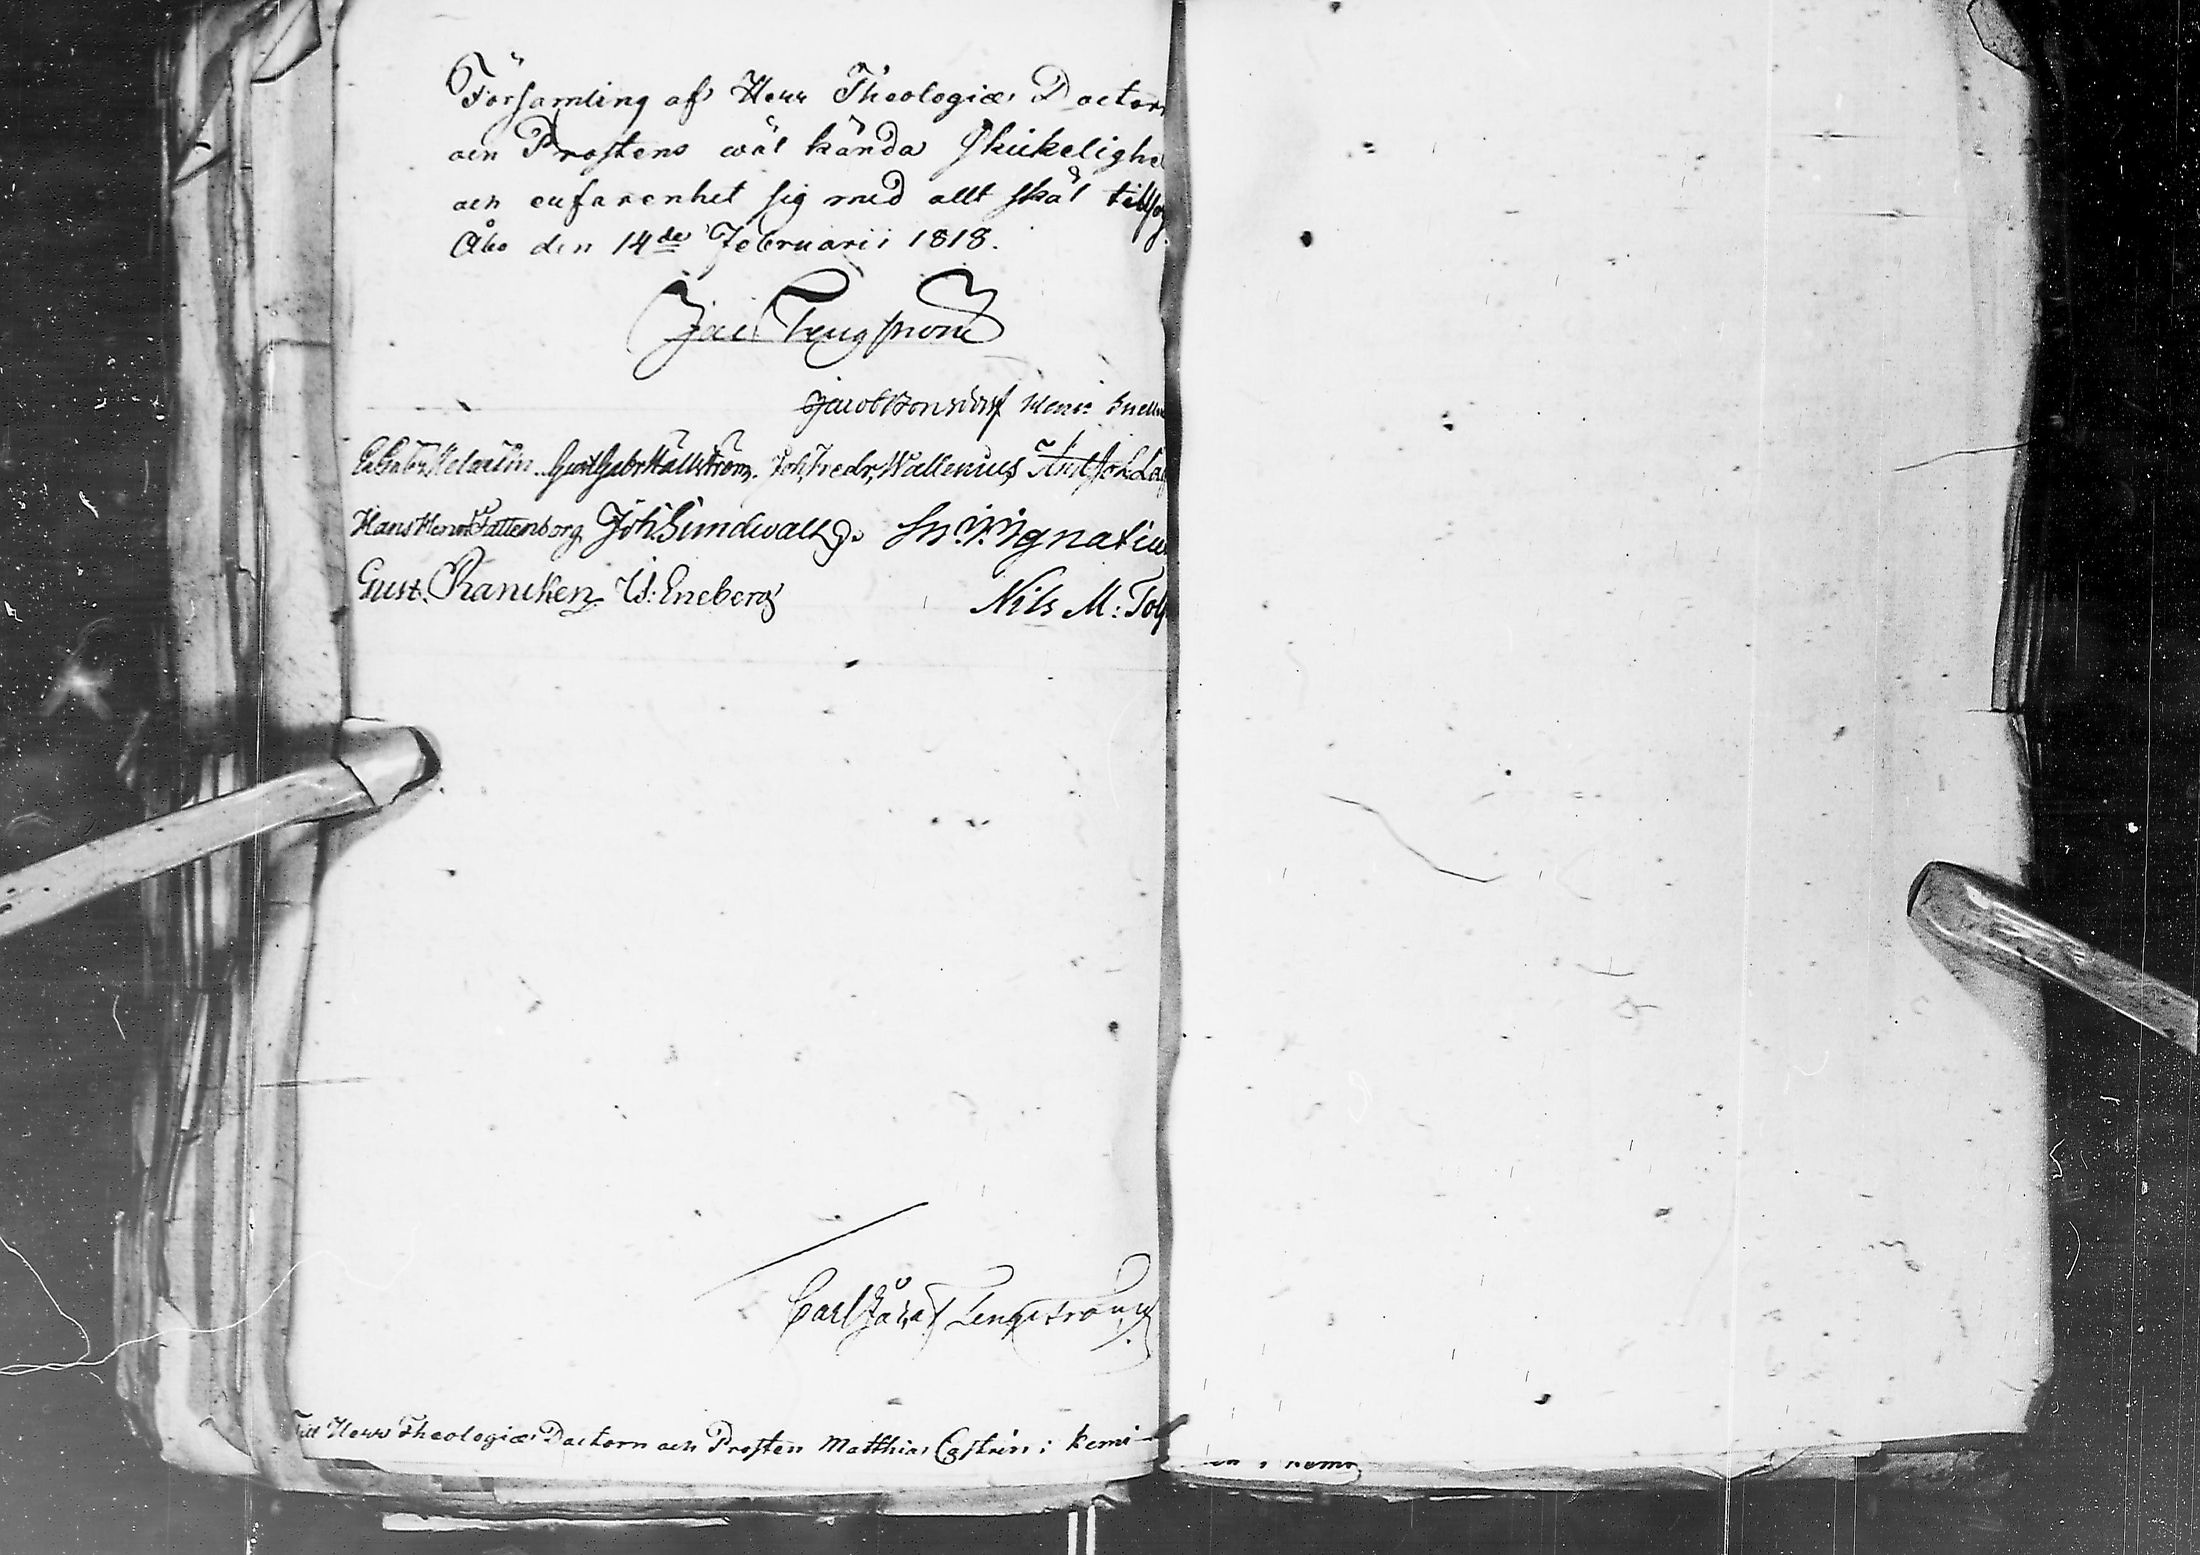 Församling af Herr Theologiæ Doctorn
och Prostens wäl kända skickelighe
och erfarenhet sig med allt skäl tillfog
Åbo den 14de Februarii 1818.
Jac. Tengström
Jacob Bonsdorff Henr: Snellm
Gabr. Melartin. Gust Gabr Hällström. Joh. Fredr. Wallenius And Joh Lag
Hans Henr Fattenborg Joh. Sundwall Js. Ignatius
Gust. Rancken W: Eneberg Nils M: Tol
Carl Johan Tengström
Till Herr Theologiæ Doctorn och Prosten Matthias Castrén i Kemi